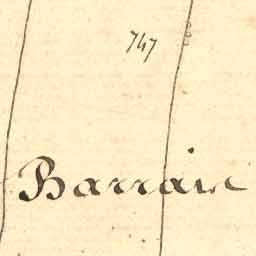 747
Barrair